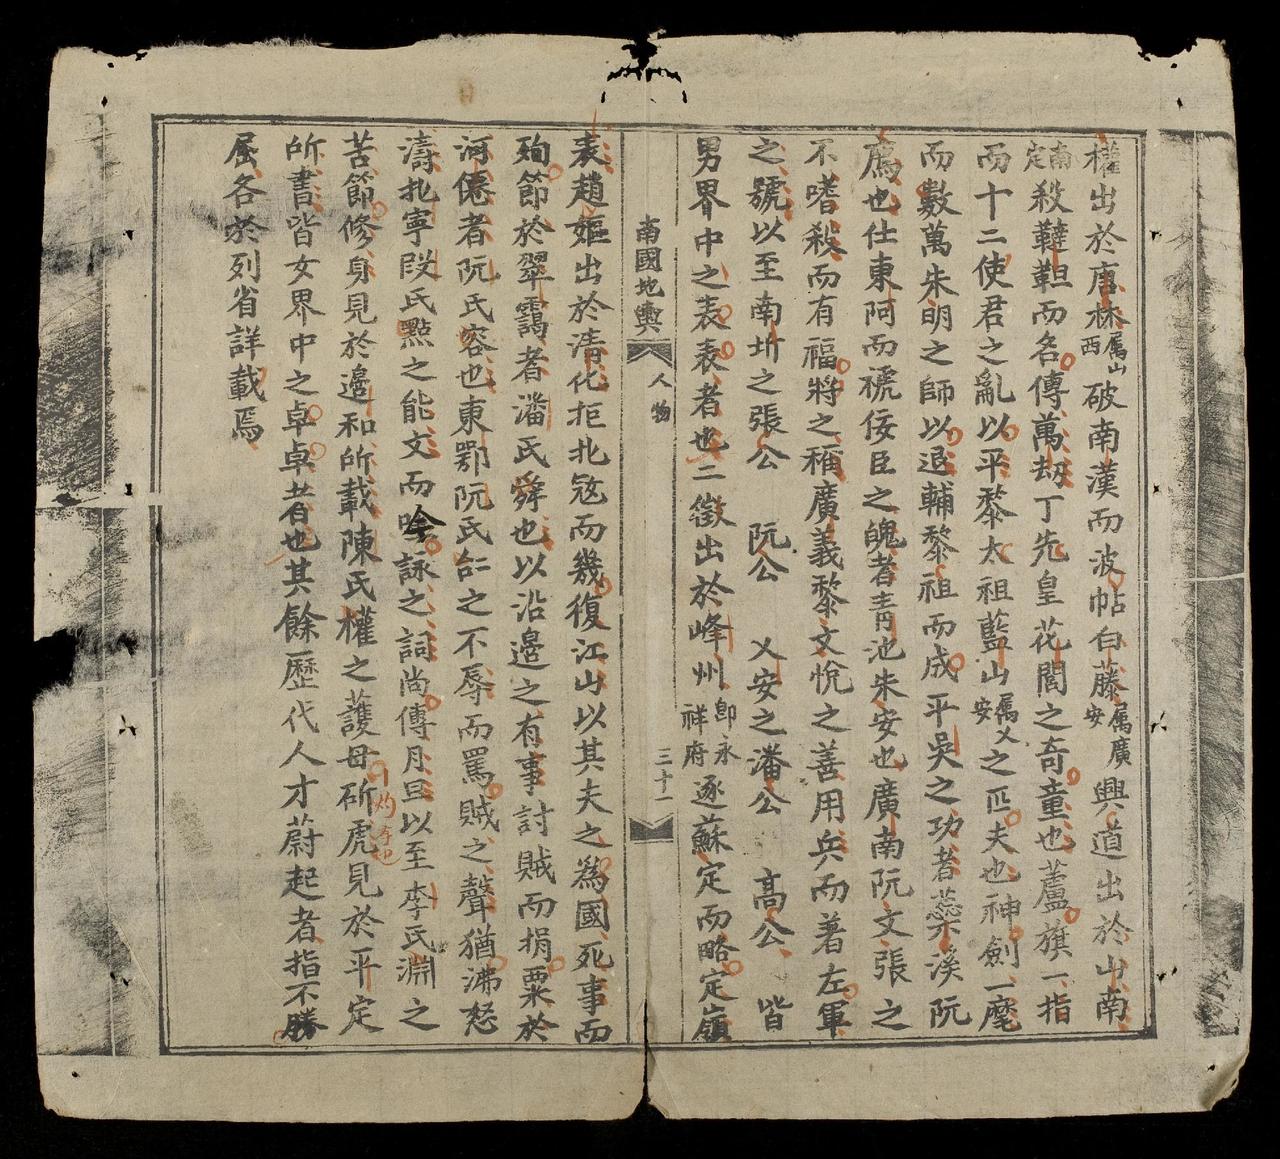 權出於唐林屬山西破南漢而波帖白藤屬廣安興道出於山南
南定殺韃靼而名傳萬劫丁先皇花閭之奇童也蘆旗一指
而十二使君之亂以平黎太祖藍山屬乂安之匹夫也神劍一麾
而數萬朱明之師以退輔黎祖而成平吳之功者蕊溪阮
廌也仕東阿而褫佞臣之魄者青池朱安也廣南阮文張之
不嗜殺而有福將之稱廣義黎文悅之善用兵而著左軍
之號以至南圻之張公 阮公 乂安之潘公 高公 皆
男界中之表表者也二徵出於峰州卽永祥府逐蘇定而略定嶺
南國地輿 人物 三十一
表趙嫗出於清化拒北寇而幾復江山以其夫之為國死事而
殉節於翠靄者潘氏舜也以沿邊之有事討賊而捐粟於
河僊者阮氏容也東鄂阮氏之不辱而罵賊之聲猶沸怒
濤扎寧段氏㸃之能文而唫詠之詞尚傳月旦以至李氏淵之
苦節修身見於邊和所載陳氏權之護母斫虎見於平定
所書皆女界中之卓卓者也其餘歷代人才蔚起者指不勝
屈各於列省詳載焉